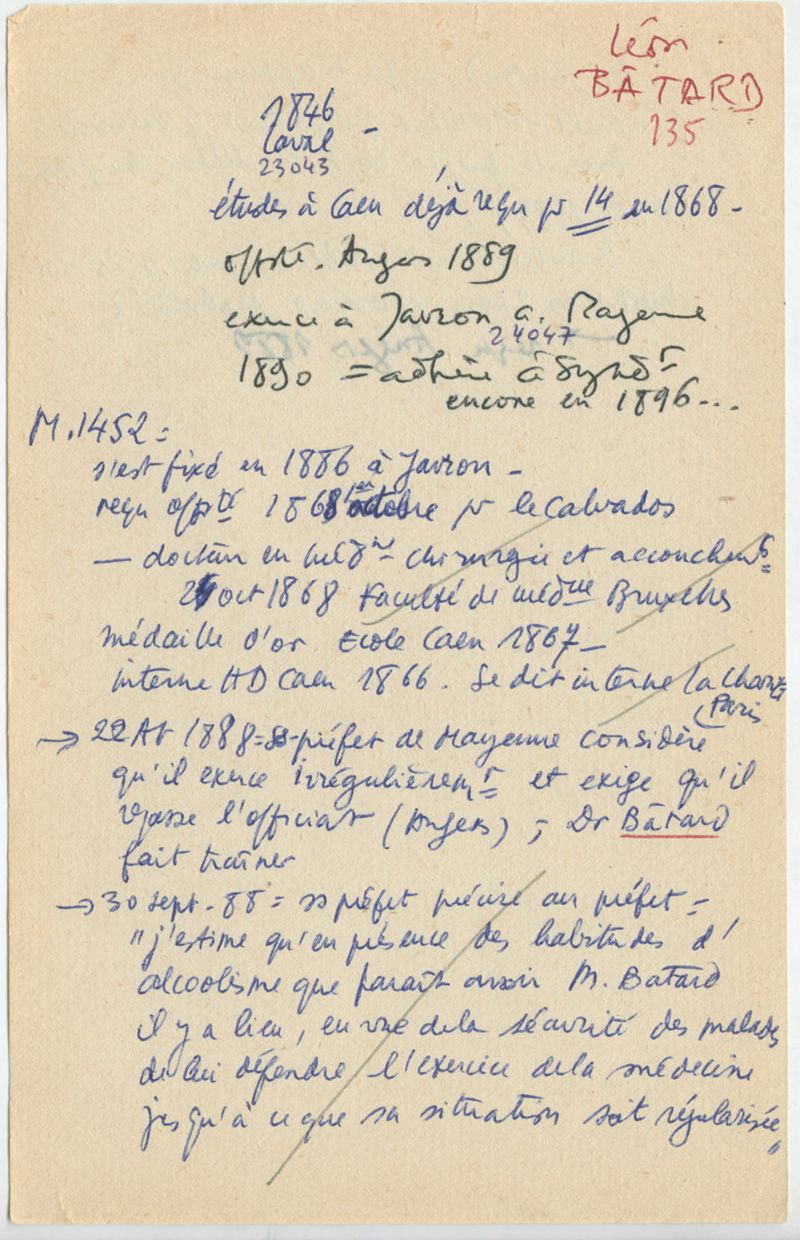 Léon
BÂTARD
135
1846
Laval -
23043
études à Caen déjà reçu pr 14 en 1868 -
offité. Angers 1889
exerce à Javron a. Mayenne
24047
1890 = adhère à Syndt
encore en 1896...
M.1452 =
s'est fixé en 1886 à Javron -
reçu offité 1868 octobre pr le Calvados
— docteur en médne chirurgie et accouchemts
21 oct 1868 Faculté de médne Bruxelles
médaille d'or Ecole Caen 1867 -
interne HD Caen 1866. Se dit interne la Charité
(Paris
→ 22 At 1888 = ss-préfet de Mayenne considère
qu'il exerce irrégulièremt et exige qu'il
repasse l'officiat (Angers) ; Dr Bâtard
fait traîner
→ 30 sept. 88 = ss préfet précise au préfet =
"j'estime qu'en présence des habitudes d'
alcoolisme que paraît avoir M. Batard
il y a lieu, en vue de la sécurité des malades
de lui défendre l'exercice de la médecine
jusqu'à ce que sa situation soit régularisée"